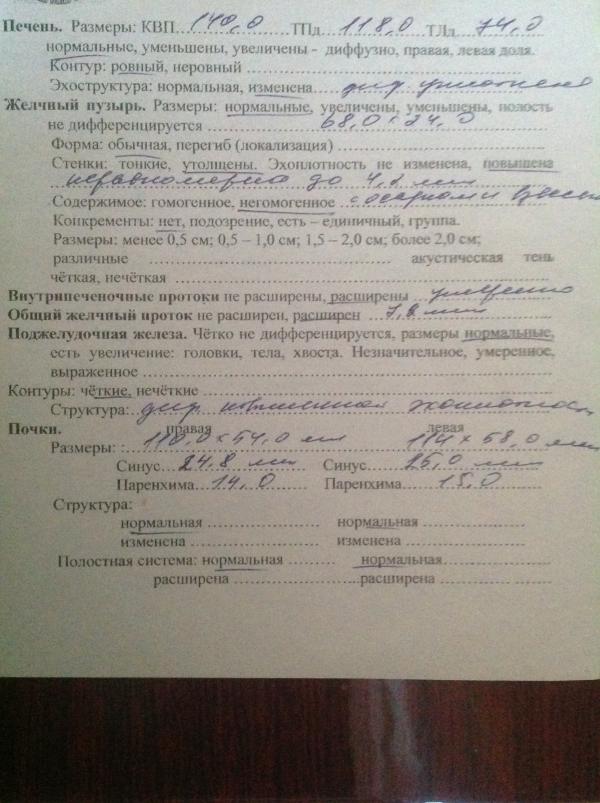 Печень. Размеры: КВП 140,0 ТПд 118,0 ТЛд 74,0
нормальные, уменьшены, увеличены - диффузно, правая, левая доля.
Контур: ровный, неровный
Эхоструктура: нормальная, изменена диф. уплотнена
Желчный пузырь. Размеры: нормальные, увеличены, уменьшены, полость
не дифференцируется 68,0 х 24,0
Форма: обычная, перегиб (локализация)
Стенки: тонкие, утолщены. Эхоплотность не изменена, повышена
неравномерно до 4,2 мм
Содержимое: гомогенное, негомогенное с осадком и
Конкременты: нет, подозрение, есть – единичный, группа.
Размеры: менее 0,5 см; 0,5 – 1,0 см; 1,5 – 2,0 см; более 2,0 см;
различные акустическая тень
чёткая, нечёткая
Внутрипеченочные протоки не расширены, расширены
Общий желчный проток не расширен, расширен 7,2 мм
Поджелудочная железа. Чётко не дифференцируется, размеры нормальные,
есть увеличение: головки, тела, хвоста. Незначительное, умеренное,
выраженное
Контуры: чёткие, нечёткие
Структура: диф. повышенная эхоплотность
Почки. правая левая
Размеры: : 110,0 х 54,0 мм 114 х 58,0 мм
Синус 24,8 мм Синус 25,0 мм
Паренхима 14,0 Паренхима 15,0
Структура:
нормальная нормальная
изменена изменена
Полостная система: нормальная нормальная
расширена расширена